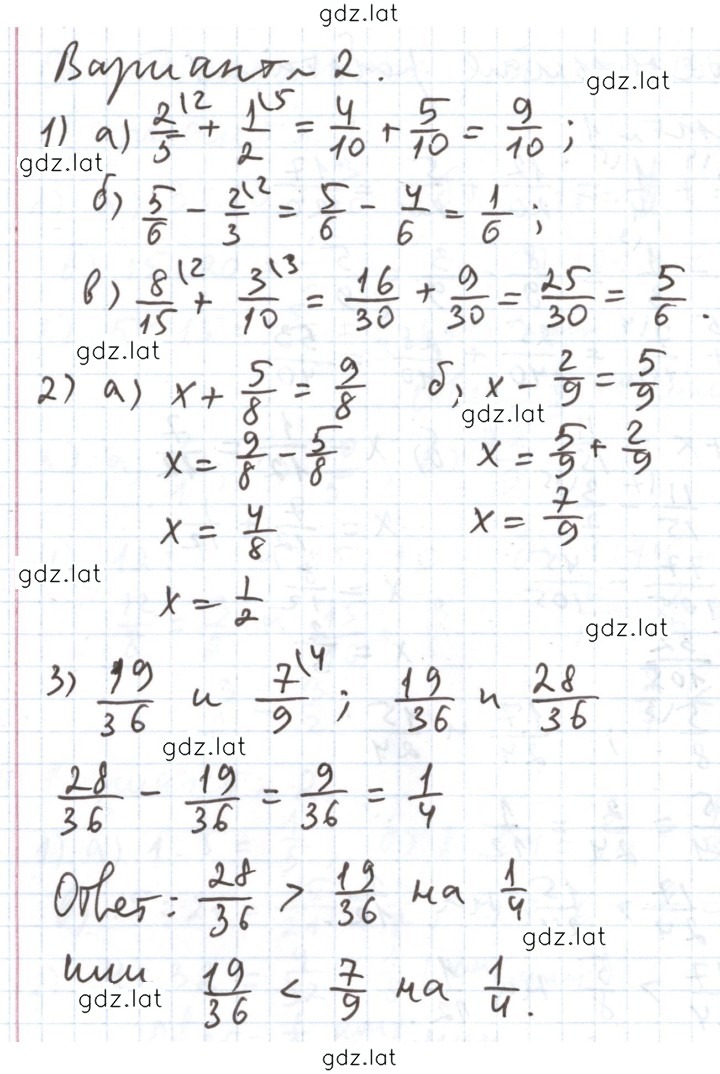 gdz.lat
Вариант 2.
gdz.lat
1) а) 2/5 \2 + 1/2 \5 = 4/10 + 5/10 = 9/10 ;
gdz.lat
б) 5/6 - 2/3 \2 = 5/6 - 4/6 = 1/6 ;
в) 8/15 \2 + 3/10 \3 = 16/30 + 9/30 = 25/30 = 5/6 .
gdz.lat
2) а) x + 5/8 = 9/8 б) x - 2/9 = 5/9
gdz.lat
x = 9/8 - 5/8 x = 5/9 + 2/9
x = 4/8 x = 7/9
gdz.lat
x = 1/2
gdz.lat
3) 19/36 и 7/9 \4 ; 19/36 и 28/36
gdz.lat
28/36 - 19/36 = 9/36 = 1/4
Ответ: 28/36 > 19/36 на 1/4
gdz.lat
или 19/36 < 7/9 на 1/4 .
gdz.lat
gdz.lat